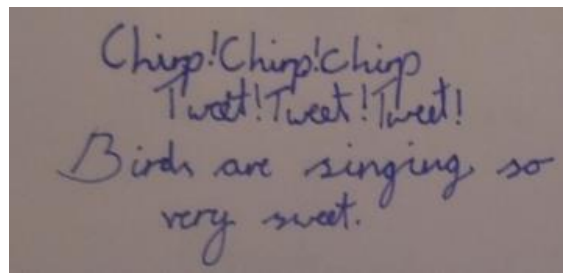 Chirp!Chirp!Chirp
Tweet!Tweet!Tweet!
Birds are singing so
very sweet.